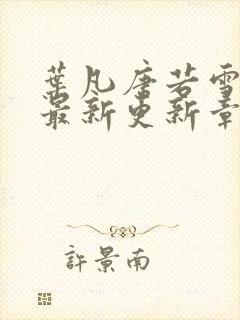 葉凡唐若雪
最新更新章
許景南